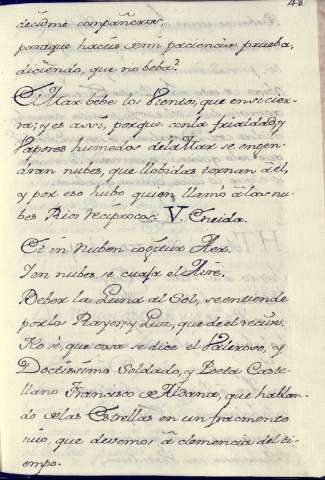 48
decidme compañeros,
porque haceis en mi paciencia prueba,
diciendo, que no beba?
El Mar bebe los Vientos, que en si cier-
ra; y es assi, porque con la frialdad, y
Vapores humedos de la Mar se engen-
dran nubes, que llobidas tornan à él,
y por eso hubo quien llamó à las nu-
bes Rios reciprocos. V. Eneida.
Et in Nubem cogitur Aer.
Y en nubes se cuaja el Aire.
Beber la Luna al Sol, se entiende
por los Rayos, y Luz, que de el recive.
No sé, que cosa se dice el Valeroso, y
Doctissimo Soldado, y Poeta Caste-
llano Francisco de Aldana, que hablan-
do de las Estrellas en un fracmento
suio, que devemos à clemencia del ti-
empo.